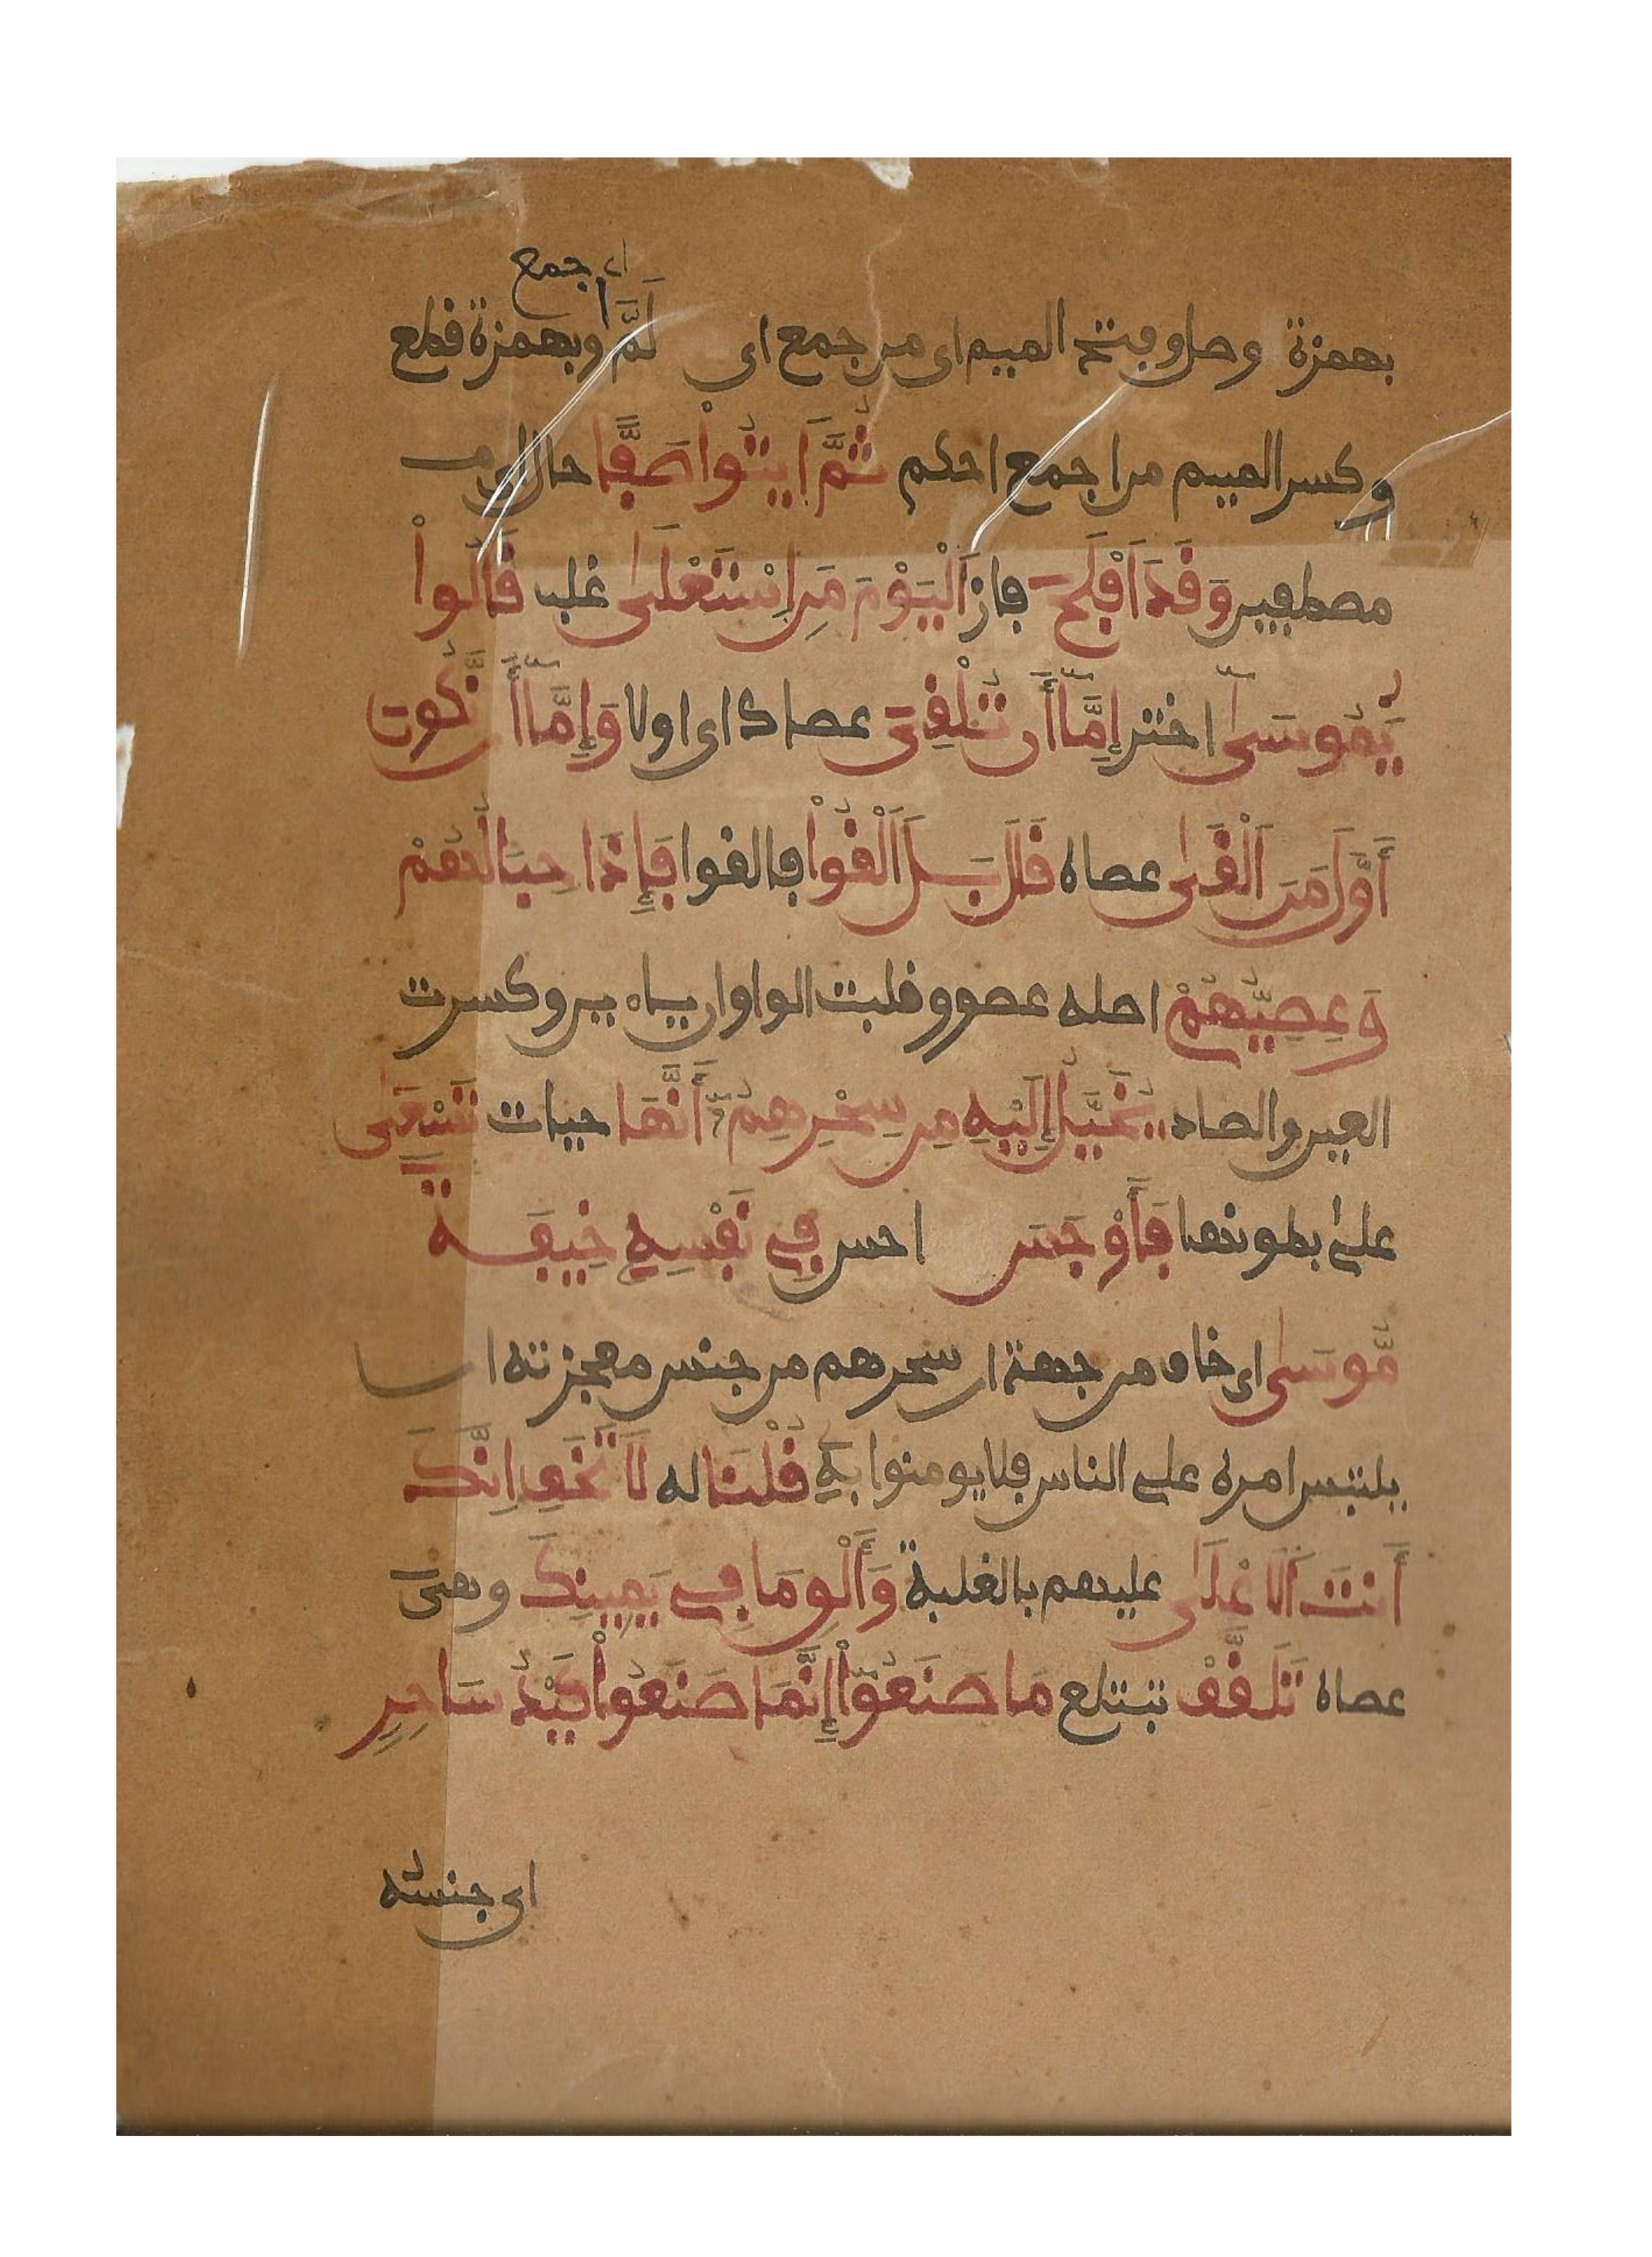 اي جمع
بهمزة وصل وبفتح الميم اي من جمع اي لَمَّ وبهمزة قطع
وكسر الميم من اجمع احكم ثُمَّ اَيتُواْ صَفّٗا حال اي
مصطفين وَقَدَ اَفْلَحَ فاز اَلْيَوْمَ مَنِ اِسْتَعْلَىٰ غلب قَالُواْ
يَٰمُوسَىٰٓ اختر إِمَّآ أَن تُلْقِيَ عصاك اي اولا وَإِمَّآ أَن نَّكُونَ
أَوَّلَ مَنَ اَلْقَىٰ عصاه قَالَ بَلَ اَلْقُواْ فالقوا فَإِذَا حِبَالُهُمْ
وَعِصِيُّهُمْ اصله عصوو قلبت الواوان ياءين وكسرت
العين والصاد يُخَيَّلُ إِلَيْهِ مِن سِحْرِهِمُۥٓ أَنَّهَا حيات تَسْعَىٰ
على بطونها فَأَوْجَسَ احس فِي نَفْسِهِ خِيفَةٗ
مُّوسَىٰ اي خاف من جهة ان سحرهم من جنس معجزته ان
يلتبس امره على الناس فلا يومنوا به قُلْنَا له لَا تَخَفِ اِنَّكَ
أَنتَ اَلَاعْلَىٰ عليهم بالغلبة وَأَلْقِ مَا فِي يَمِينِكَ وهي
عصاه تَلَقَّفْ تبتلع مَا صَنَعُوٓاْ إِنَّمَا صَنَعُواْ كَيْدُ سَٰحِرٖ
اي جنسه